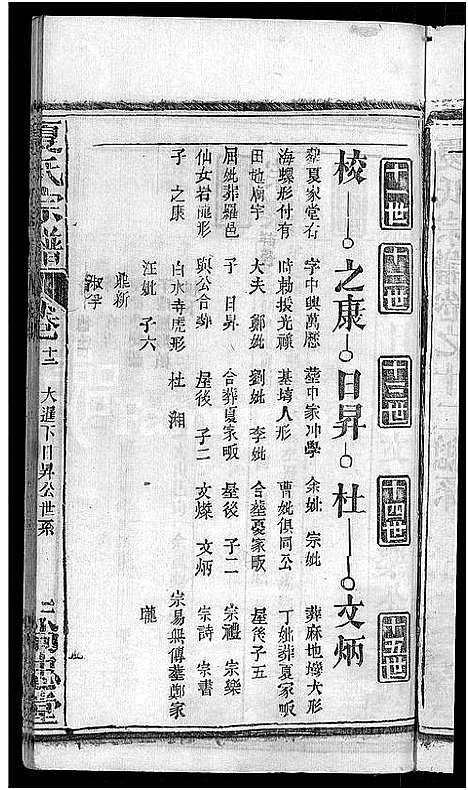 十一世 十二世 十三世 十四世 十五世
校 之康 日昇 杜 文炳
葬夏家堂右 字中興萬歷 葬中家冲學 余妣 宗妣 葬麻地塝大形
海螺形付有 時勅授光祿 基塝人形 曹妣俱同公 丁妣葬夏家畈
田地廟宇 大夫 鄭妣 劉妣 李妣 合葬夏家畈 屋後子五
屈妣葬羅邑 子 日昇 合葬夏家畈 屋後 子二 宗禮 宗樂
仙女若龍形 與公合葬 屋後 子二 文燦 文炳 宗詩 宗書
子 之康 白水寺虎形 杜 湘 宗易無傳葬鄭家
江妣 子六 隴
鼎新
淑孚
夏氏宗譜 卷 十二 大遲下日昇公世系